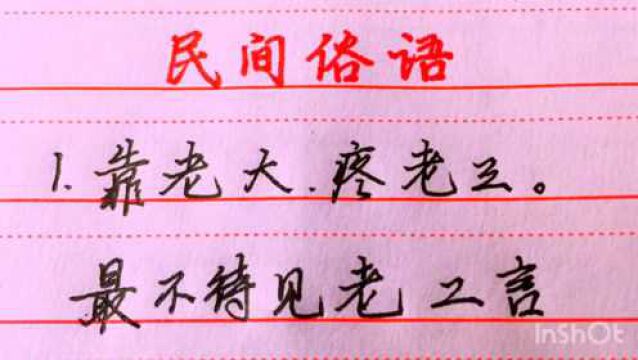 民间俗语
1.靠老大.疼老三。
最不待见老二言
InShot